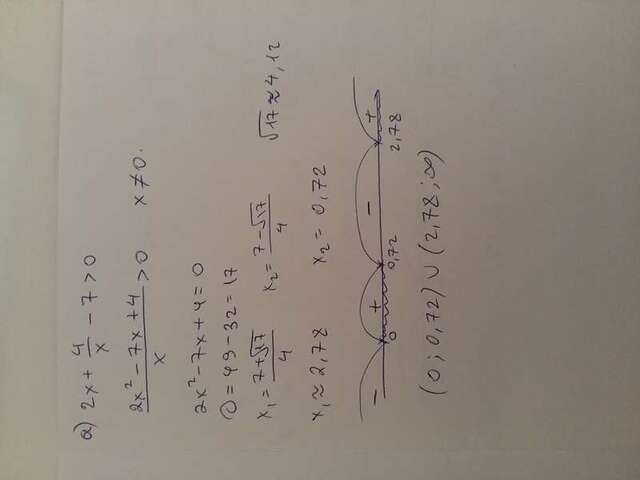 a) 2x + 4/x - 7 > 0
(2x² - 7x + 4)/x > 0 x ≠ 0.
2x² - 7x + 4 = 0
D = 49 - 32 = 17
x₁ = (7 + √17)/4 x₂ = (7 - √17)/4 √17 ≈ 4,12
x₁ ≈ 2,78 x₂ = 0,72
- + - +
0 0,72 2,78
(0; 0,72) ∪ (2,78; ∞)